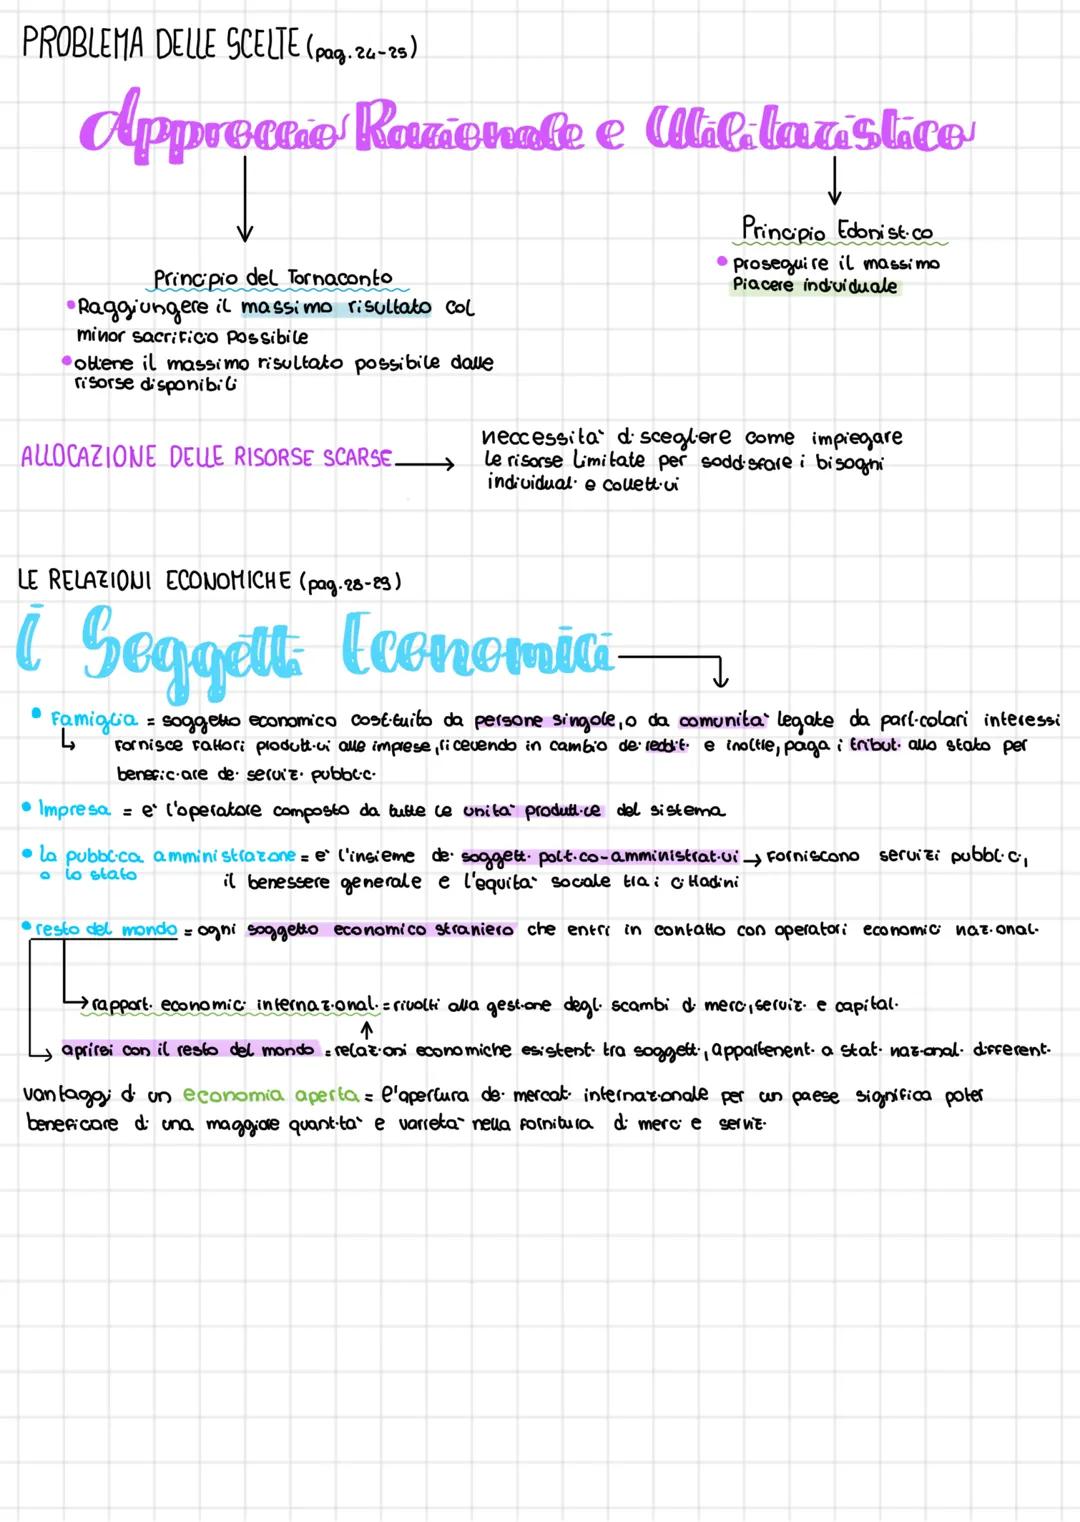 PROBLEMA DELLE SCELTE (pag. 24-25)
Approccio Razionale e Utilitaristico
Principio Edonistico
• proseguire il massimo
Piacere individuale
Principio del Tornaconto
• Raggiungere il massimo risultato col
minor sacrificio possibile
• ottene il massimo risultato possibile dalle
risorse disponibili
ALLOCAZIONE DELLE RISORSE SCARSE →
neccessita` di scegliere come impiegare
le risorse limitate per soddisfare i bisogni
individuali e collettivi
LE RELAZIONI ECONOMICHE (pag. 28-29)
I Soggetti Economici
• Famiglia = soggetto economico costituito da persone singole, o da comunita` legate da particolari interessi
fornisce fattori produttivi alle imprese, ricevendo in cambio dei redditi e inoltre, paga i tributi allo stato per
beneficiare dei servizi pubblici
• Impresa = e` l'operatore composto da tutte le unita` produttice del sistema
• la pubblica amministrazione = e` l'insieme dei soggetti politico-amministrativi → forniscono servizi pubblici,
o lo stato il benessere generale e l'equita` sociale tra i cittadini
• resto del mondo = ogni soggetto economico straniero che entri in contatto con operatori economici nazionali
→ rapporti economici internazionali = rivolti alla gestione degli scambi di merci, servizi e capitali
→ aprirsi con il resto del mondo = relazioni economiche esistenti tra soggetti, appartenenti a stati nazionali differenti
vantaggi di un economia aperta = l'apertura dei mercati internazionale per un paese significa poter
beneficare di una maggiore quantita` e varieta` nella fornitura di merci e servizi